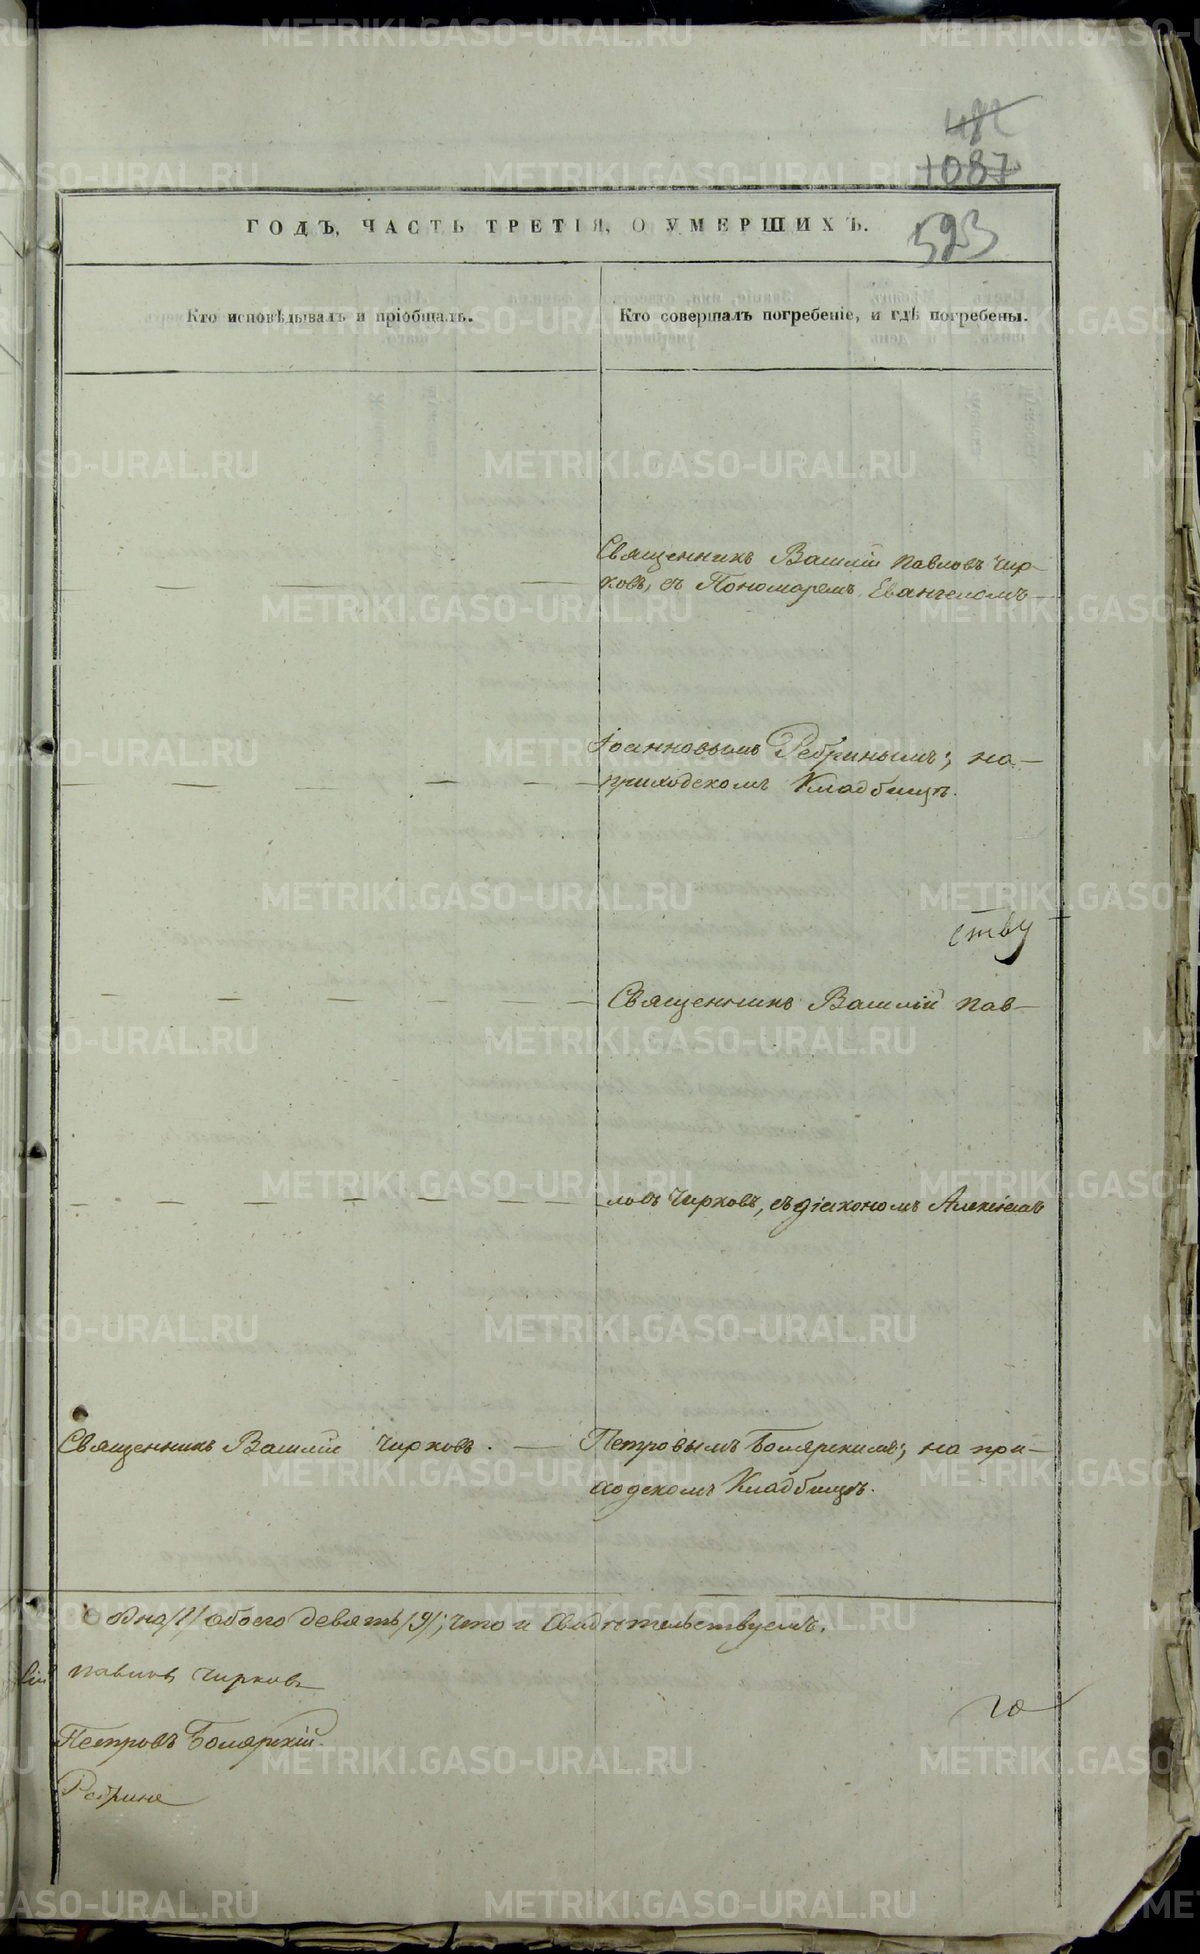 482
1087
ГОДЪ, ЧАСТЬ ТРЕТІЯ, О УМЕРШИХЪ.
523
Кто исповѣдывалъ и пріобщалъ.
Кто совершалъ погребеніе, и гдѣ погребены.
Священникъ Василій Павловъ Чир-
ковъ, съ Пономаремъ Евангеломъ
Іоанновымъ Ребринымъ; на-
приходскомъ Кладбищѣ.
ству
Священникъ Василій Пав-
ловъ Чирковъ, съ Діакономъ Алексіемъ
Священникъ Василій Чирковъ.
Петровымъ Боярскимъ; на при-
ходскомъ Кладбищѣ.
одна /1/ обоего девять /9/; что и свидѣтельствуемъ.
лій Павловъ Чирковъ
Петровъ Боярскій.
Ребринъ
METRIKI.GASO-URAL.RU